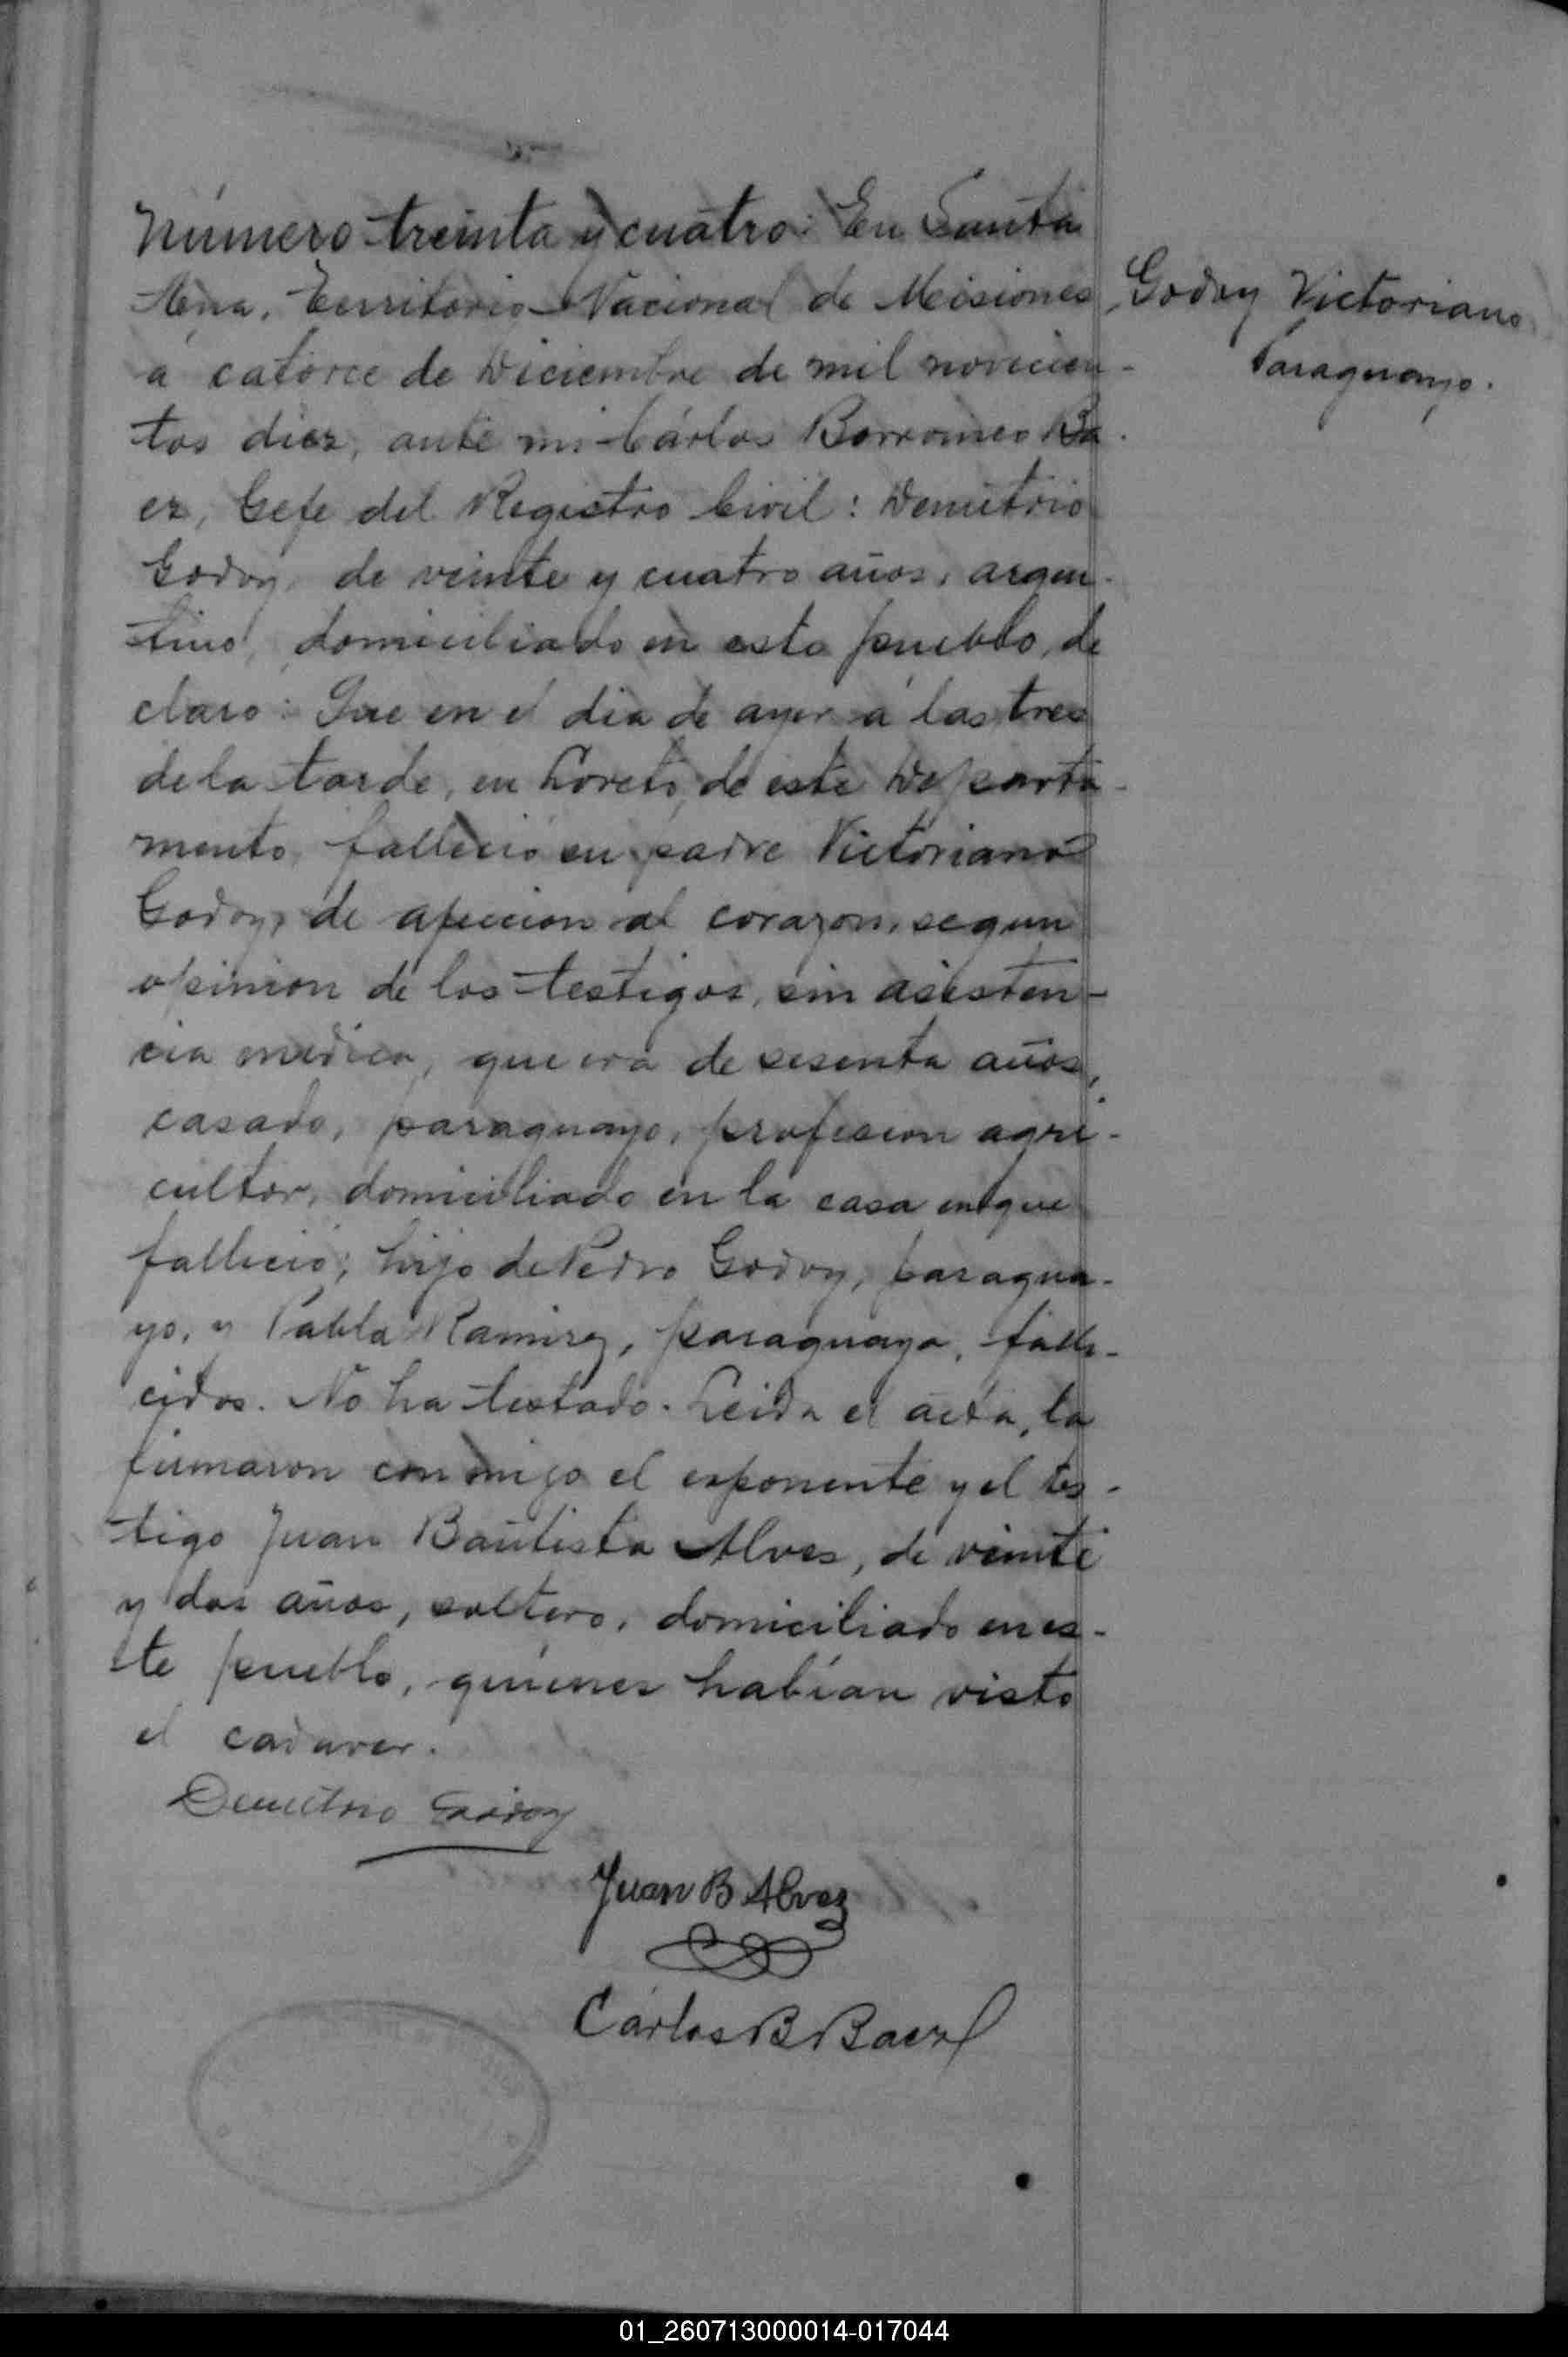 Número treinta y cuatro: En Santa
Ana, Territorio Nacional de Misiones
Godoy Victoriano
Paraguayo.
á catorce de Diciembre de mil novecien-
tos diez, ante mi Cárlos Borromeo Ba
ez, Gefe del Registro Civil: Demetrio
Godoy, de veinte y cuatro años, argen-
tino, domiciliado en este pueblo, de
claro: Que en el dia de ayer á las tres
de la tarde, en Loreto, de este Departa-
mento, falleció su padre Victoriano
Godoy, de afeccion al corazon, segun
opinion de los testigos, sin asisten-
cia medica, que era de sesenta años,
casado, paraguayo, profesion agri-
cultor, domiciliado en la casa en que
falleció; hijo de Pedro Godoy, paragua-
yo, y Pabla Ramirez, paraguaya, falle-
cidos. No ha testado. Leida el acta, la
firmaron conmigo el exponente y el tes-
tigo Juan Bautista Alves, de veinte
y dos años, soltero, domiciliado en es-
te pueblo, quienes habían visto
el cadaver.
Demetrio Godoy
Juan B Alvez
Cárlos B Baez
01_260713000014-017044